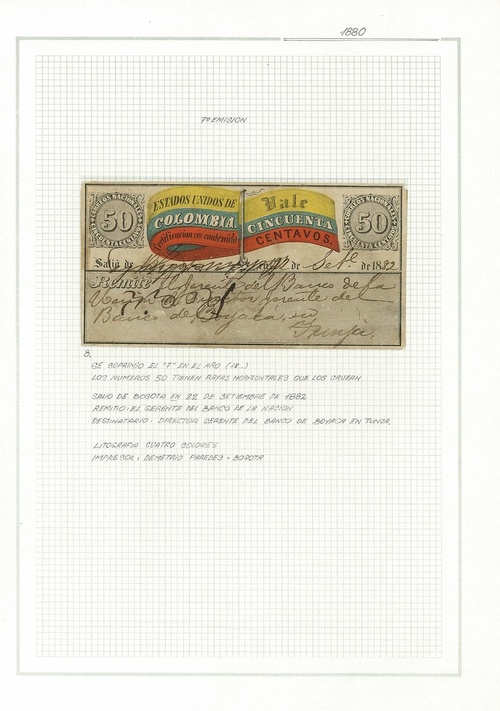 1880
7ª EMISION
CORREOS NACIONALES
50
CINCUENTA CENTAVOS
ESTADOS UNIDOS DE
COLOMBIA.
Certificacion con contenido
Vale
CINCUENTA
CENTAVOS.
CORREOS NACIONALES
50
CINCUENTA CENTAVOS
Salió de Bogotá de Sete. de 1882
Remite El Gerente del Banco de la
Unión al Director gerente del
Banco de Boyaca, en
Tunja.
8.
SE SUPRIMIO EL "7" EN EL AÑO (18...)
LOS NUMEROS 50 TIENEN RAYAS HORIZONTALES QUE LOS CRUZAN
SALIO DE BOGOTA EN 22 DE SETIEMBRE DE 1882
REMITIO: EL GERENTE DEL BANCO DE LA NACION
DESTINATARIO - DIRECTOR GERENTE DEL BANCO DE BOYACA EN TUNJA.
LITOGRAFIA CUATRO COLORES
IMPRESOR: DEMETRIO PAREDES - BOGOTA